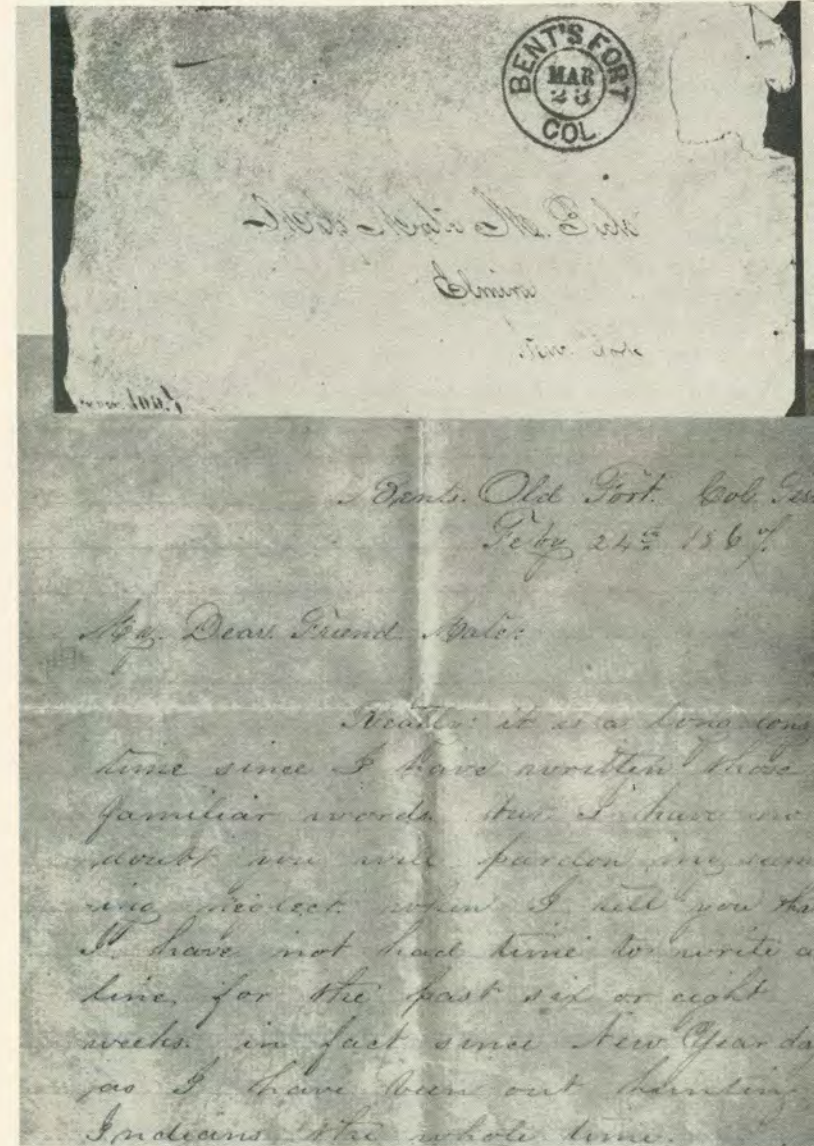 BENT'S FORT
MAR
23
COL
M. 
Elmira
New York
Bents. Old Fort. Col. Terr
Feby 24th 1867.
My. Dear. Friend Mate.
it is a long long
time since I have written those
familiar words. but I have no
doubt you will pardon my seem
ing neglect. when I tell you tha
I have not had time to write a
line for the past six or eight
weeks. in fact since New Year da
as I have been out hunting
Indians the whole time.